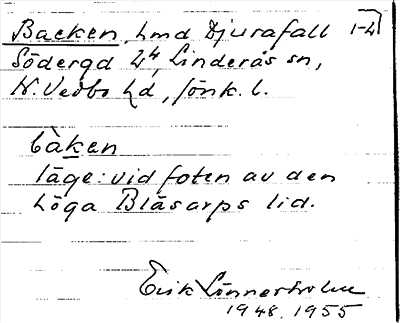 Backen, hmd Djurafall 1-2
Södergd 2⁴, Linderås sn,
N. Vedbo hd, Jönk. l.
bàken
läge: vid foten av den
höga Blåsarps lid.
Erik Lönnerholm
1948, 1955